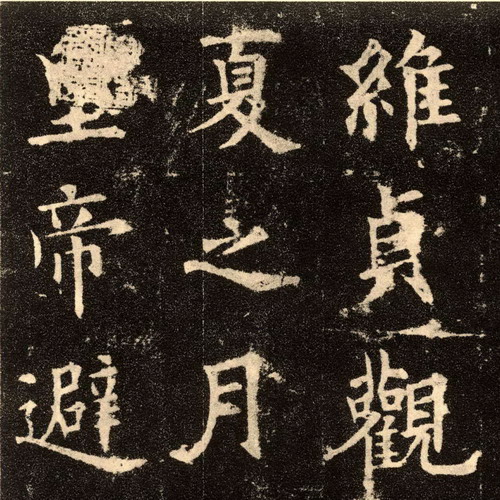 維貞觀
夏之月
帝避